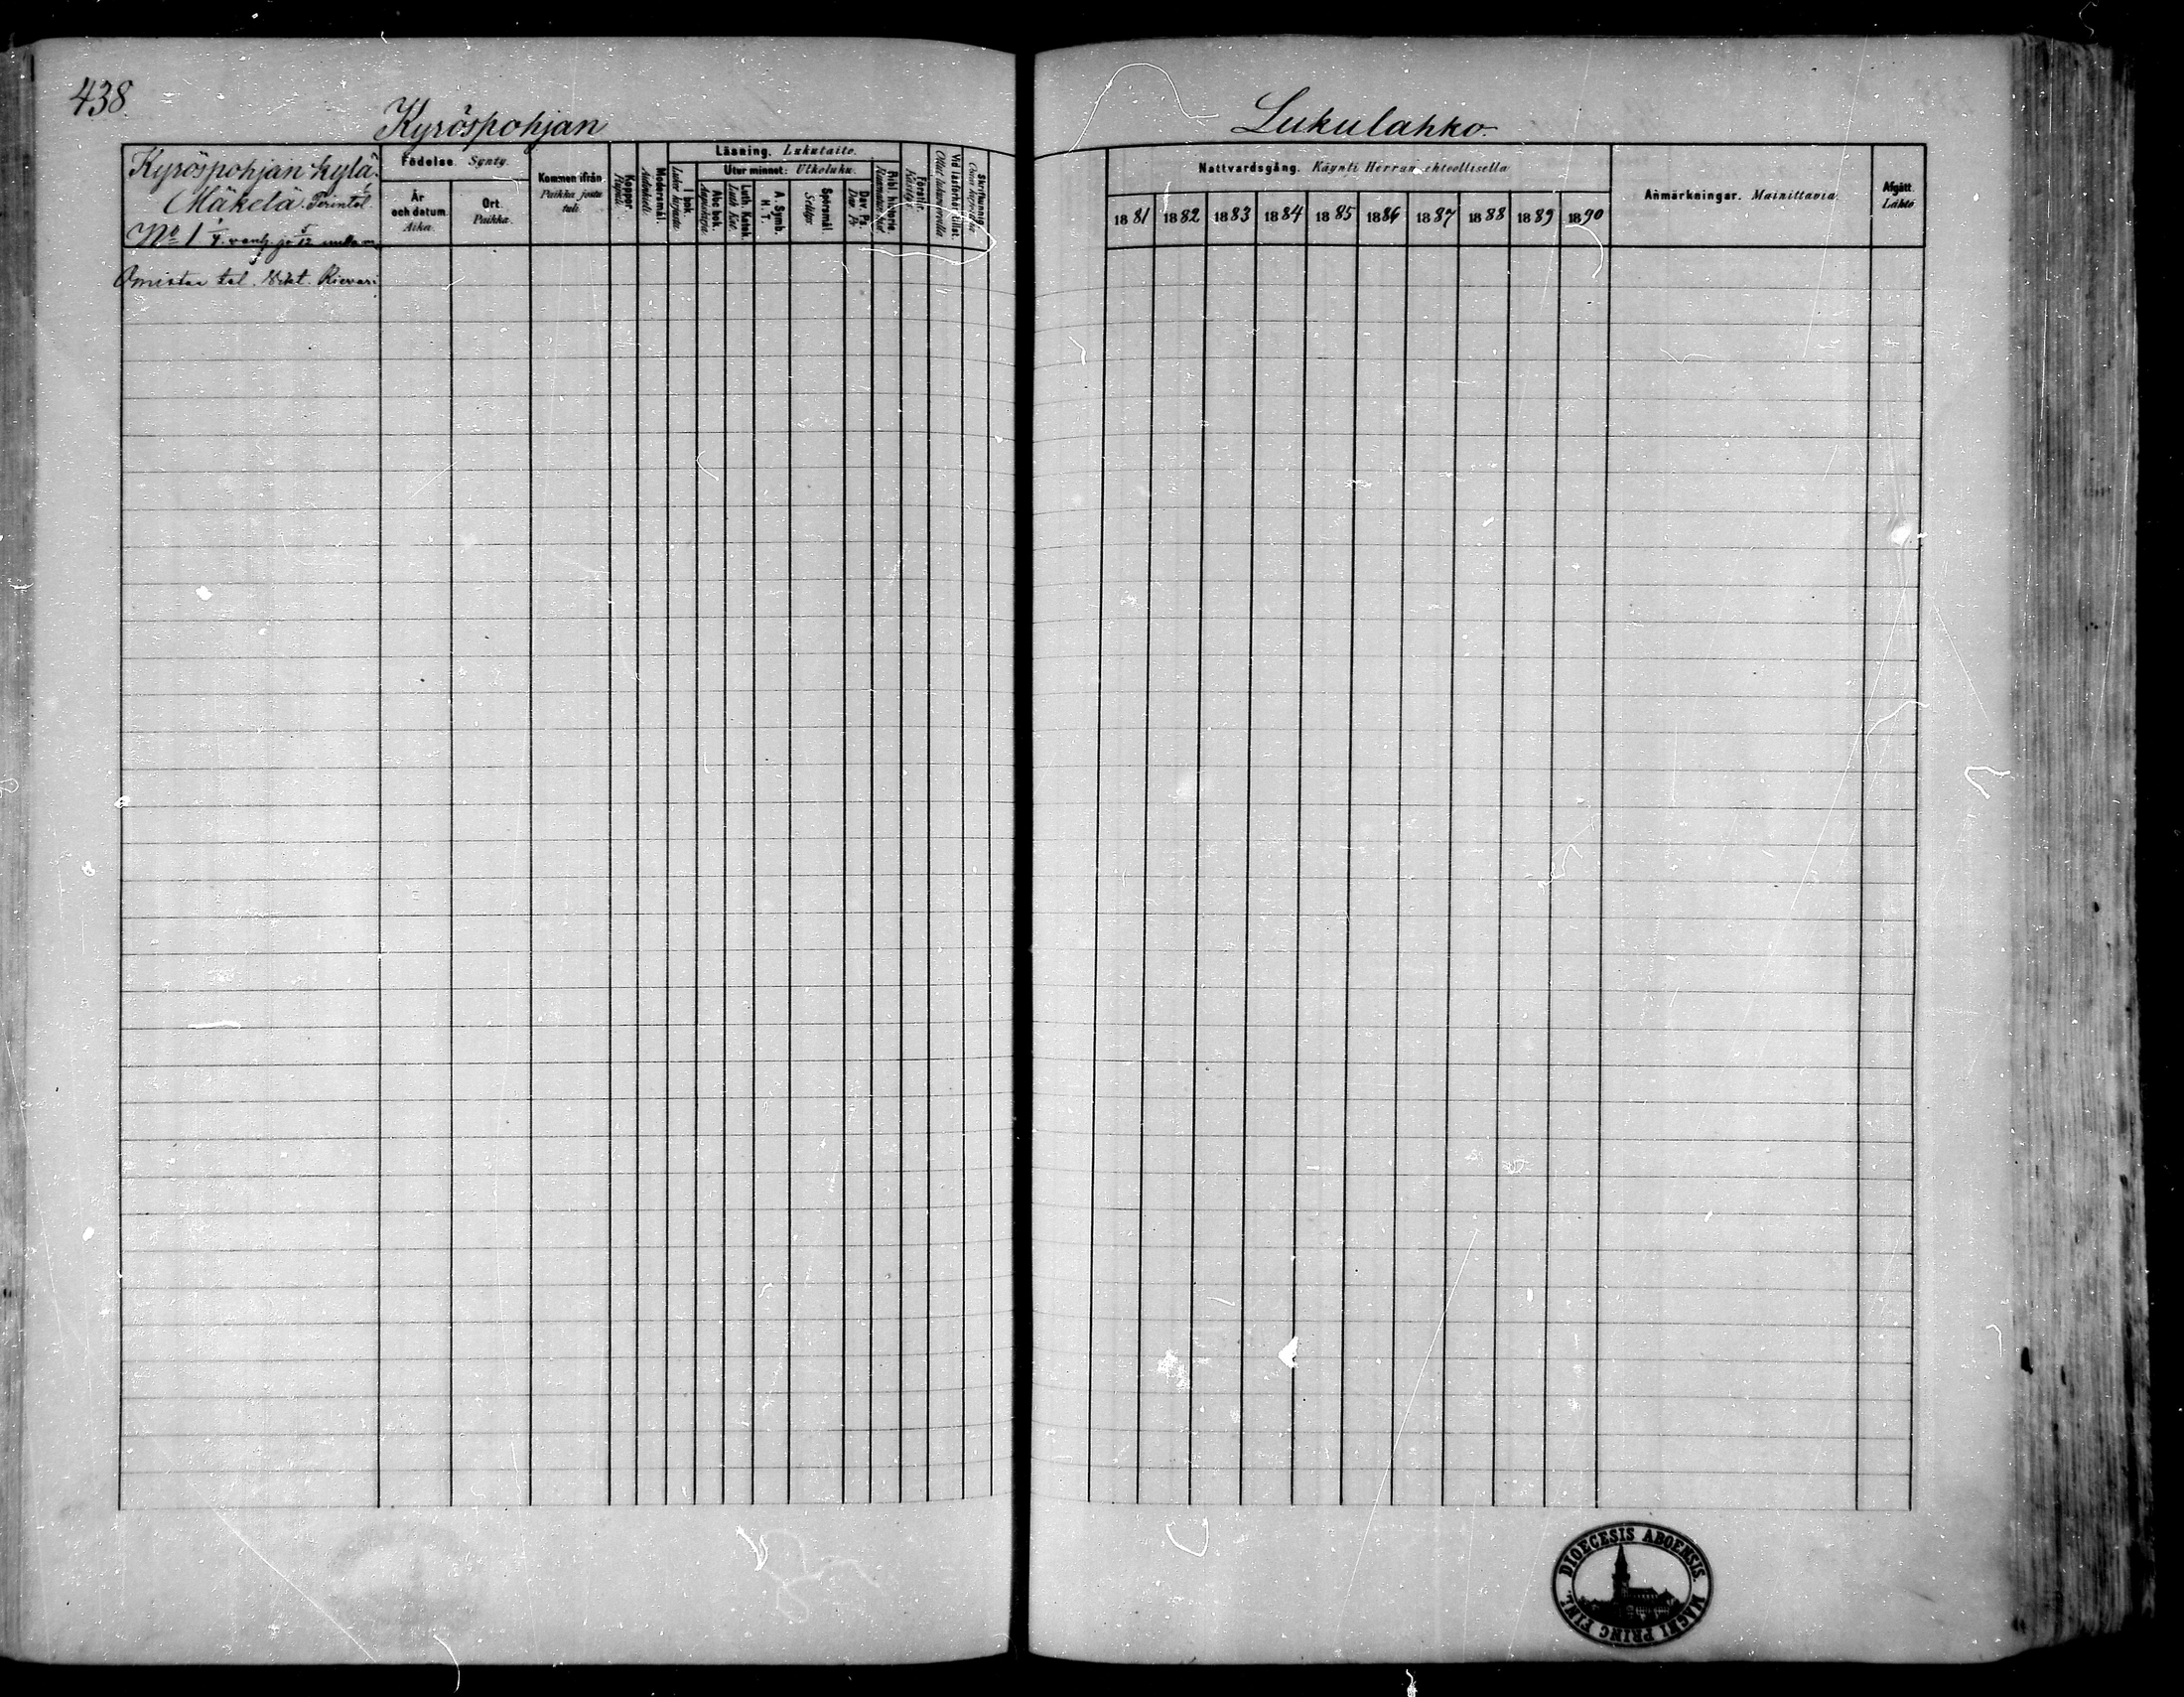 438.
Kyröspohjan
Lukulahko.
Kyröspohjan kylä.
Mäkelä. Perintöl.
No 1 1/4 vanh. ja 5/12
Omistaa tal. Rievari
Födelse. Synty.
År och datum. Aika.
Ort. Paikka.
Kommen ifrån
Paikka josta tuli
Koppor. Rupuli.
Modersmål.
Läsning. Lukutaito.
I bok.
Utur minnet: Ulkoluku.
Abc bok. Aapiskirja.
Luth. Katek. Luth. Kat.
A. Symb. H. T.
Spörsmål. Selitys
Dav. Ps. Dav. Ps.
Bibl. historie.
Förstår. Käsitys
Vid läsförhör tillst.
Skriftunnig.
Nattvardsgång. Käynti Herran ehtoollisella
1881 1882 1883 1884 1885 1886 1887 1888 1889 1890
Anmärkningar. Mainittavia.
Afgått. Lähtö
DIOECESIS ABOENSIS. MAGNI PRINC FINL.